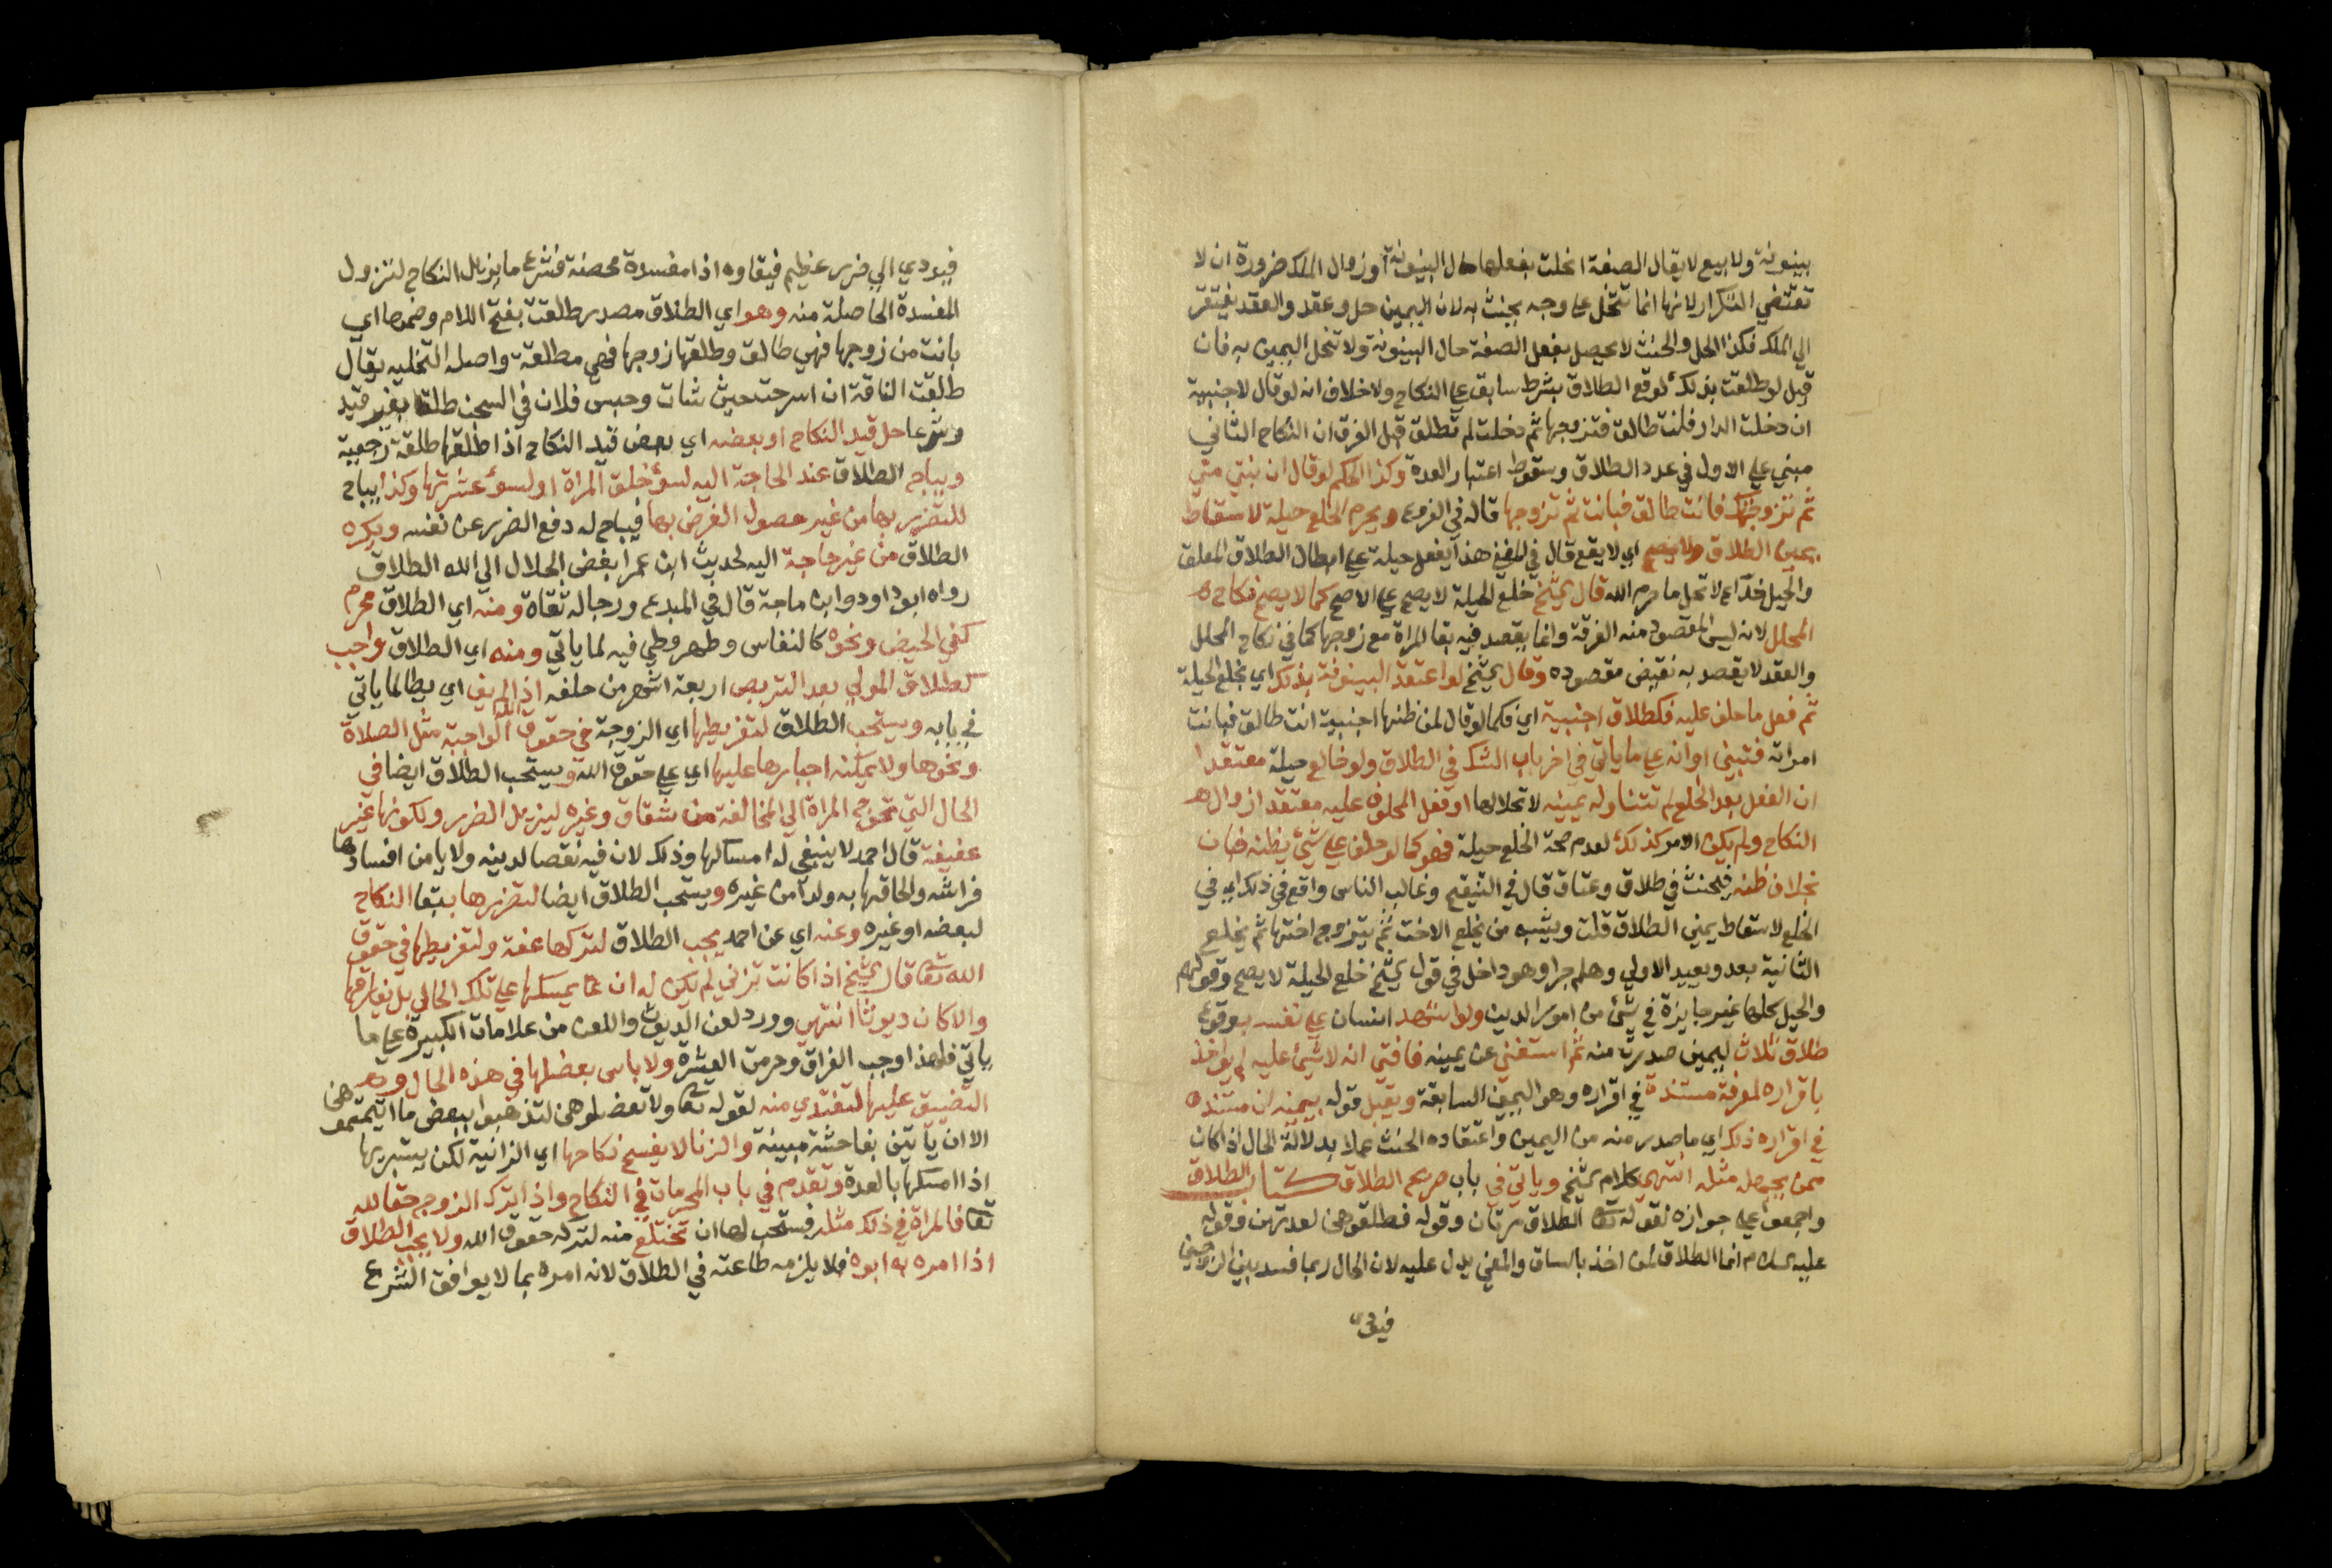 بينونة ولا بيع لا يقال الصفة انحلت بفعلها حال البينونة او زوال الملك ضرورة ان لا
تقتضي التكرار لانها انما تنحل علي وجه يحنث به لان اليمين حل وعقد والعقد يفتقر
الي الملك فكذا الحل والحنث لا يحصل بفعل الصفة حال البينونة ولا تنحل اليمين به فان
قيل لو طلقت بذلك لوقع الطلاق بشرط سابق علي النكاح ولا خلاف انه لو قال لاجنبية
ان دخلت الدار فانت طالق فتزوجها ثم دخلت لم تطلق قيل الفرق ان النكاح الثاني
مبني علي الاول في عدد الطلاق وسقوط اعتبار العدة وكذا الحكم لو قال ان بنتي مني
ثم تزوجتك فانت طالق فبانت ثم تزوجها قاله في الفروع ويحرم الخلع حيلة لاسقاط
يمين الطلاق ولا يصح اي لا يقع قال في المغني هذا يفعل حيلة علي ابطال الطلاق المعلق
والحيل خداع لا تحل ما حرم الله قال الشيخ خلع الحيلة لا يصح علي الاصح كما لا يصح نكاح
المحلل لانه ليس المقصود منه الفرقة وانما يقصد فيه بقا المراة مع زوجها كما في نكاح المحلل
والعقد لا يقصد به نقيض مقصوده وقال الشيخ لو اعتقد البينونة بذلك اي بخلع الحيلة
ثم فعل ما حلف عليه فكطلاق اجنبية اي فكما لو قال لمن ظنها اجنبية انت طالق فبانت
امراته فتبين امرانه علي ما ياتي في اخر باب الشك في الطلاق ولو خالع حيلة معتقدا
ان الفعل بعد الخلع لم تتناوله يمينه لانحلالها او فعل المحلوف عليه معتقدا زوال
النكاح ولم يكن الامر كذلك لعدم صحة الخلع حيلة فهو كما لو حلف علي شيئ يظنه فبان
بخلاف ظنه فيحنث في طلاق وعتاق قال في التنقيح وغالب الناس واقع في ذلك اي في
الخلع لاسقاط يمين الطلاق قلت ويشبه من يخلع الاخت ثم يتزوج اختها ثم يخلع
الثانية بعد ويعيد الاولي وهلم جرا وهو داخل في قول الشيخ خلع الحيلة لا يصح وقولهم
والحيل كلها غير جايزة في شئ من امور الدين ولو اشهد انسان علي نفسه بوقوع
طلاق ثلاث ليمين صدرت منه ثم استفتي عن يمينه فافتي انه لا شيئ عليه لم يؤاخذ
باقراره لمعرفة مستنده في اقراره وهو اليمين السابقة ويقبل قوله بيمينه ان مستنده
في اقراره ذلك اي ما صدر منه من اليمين واعتقاده الحنث عملا بدلالة الحال اذا كان
ممن يجهل مثله انتهي كلام الشيخ وياتي في باب صريح الطلاق كتاب الطلاق
واجمعوا علي جوازه لقوله تعا الطلاق مرتان وقوله فطلقوهن لعدتهن وقوله
عليه السلام انما الطلاق لمن اخذ بالساق والمعني يدل عليه لان الحال ربما فسد بين الزوجين
فيؤدي
فيؤدي الي ضرر عظيم فبقاوه اذا مفسدة محضة فشرع ما يزيل النكاح لتزول
المفسدة الحاصلة منه وهو اي الطلاق مصدر طلقت بفتح اللام وضمها اي
بانت من زوجها فهي طالق وطلقها زوجها فهي مطلقة واصله التخليه يقال
طلقت الناقة ان اسرحت حيث شات وحبس فلان في السجن طلقا بغير قيد
وشرعا حل قيد النكاح او بعضه اي بعض قيد النكاح اذا طلقها طلقة رجعية
ويباح الطلاق عند الحاجة اليه لسؤ خلق المراة او لسؤ عشرتها وكذا يباح
للتضرر بها من غير حصول الغرض بها فيباح له دفع الضرر عن نفسه ويكره
الطلاق من غير حاجة اليه لحديث ابن عمر ابغض الحلال الي الله الطلاق
رواه ابو داود وابن ماجة قال في المبدع ورجاله ثقاة ومنه اي الطلاق محرم
كفي الحيض ونحوه كالنفاس وطهر وطي فيه لما ياتي ومنه اي الطلاق واجب
كطلاق المولي بعد التربص اربعة اشهر من حلفه اذا لم يفي اي يطا لما ياتي
في بابه ويستحب الطلاق لتفريطها اي الزوجة في حقوق الله الواجبة مثل الصلاة
ونحوها ولا يمكنه اجبارها عليها اي علي حقوق الله ويستحب الطلاق ايضا في
الحال التي تحوج المراة الي المخالفة من شقاق وغيره ليزيل الضرر ولكونها غير
عفيفة قال احمد لا ينبغي له امساكها وذلك لان فيه نقصا لدينه ولا يامن افسادها
فراشه والحاقها به ولدا من غيره ويستحب الطلاق ايضا لتضررها ببقا النكاح
لبغضه او غيره وعنه اي عن احمد يجب الطلاق لتركها عفة ولتفريطها في حقوق
الله تعا قال الشيخ اذا كانت تزني لم يكن له ان يمسكها علي تلك الحال بل يفارقها
والا كان ديوثا انتهي وورد لعن الديوث واللعن من علامات الكبيرة علي ما
ياتي فلهذا اوجب الفراق وحرمت العشرة ولا باس بعضلها في هذه الحال و
التضييق عليها لتفتدي منه لقوله تعا ولا تعضلوهن لتذهبوا ببعض ما اتيتموهن
الا ان ياتين بفاحشة مبينة والزنا لا يفسخ نكاحها اي الزانية لكن يستبريها
اذا امسكها بالعدة وتقدم في باب المحرمات في النكاح واذا ترك الزوج حقا لله
تعا فالمراة في ذلك مثله فستحب لها ان تختلع منه لتركه حقوق الله ولا يجب الطلاق
اذا امره به ابوه فلا يلزمه طاعته في الطلاق لانه امره بما لا يوافق الشرع